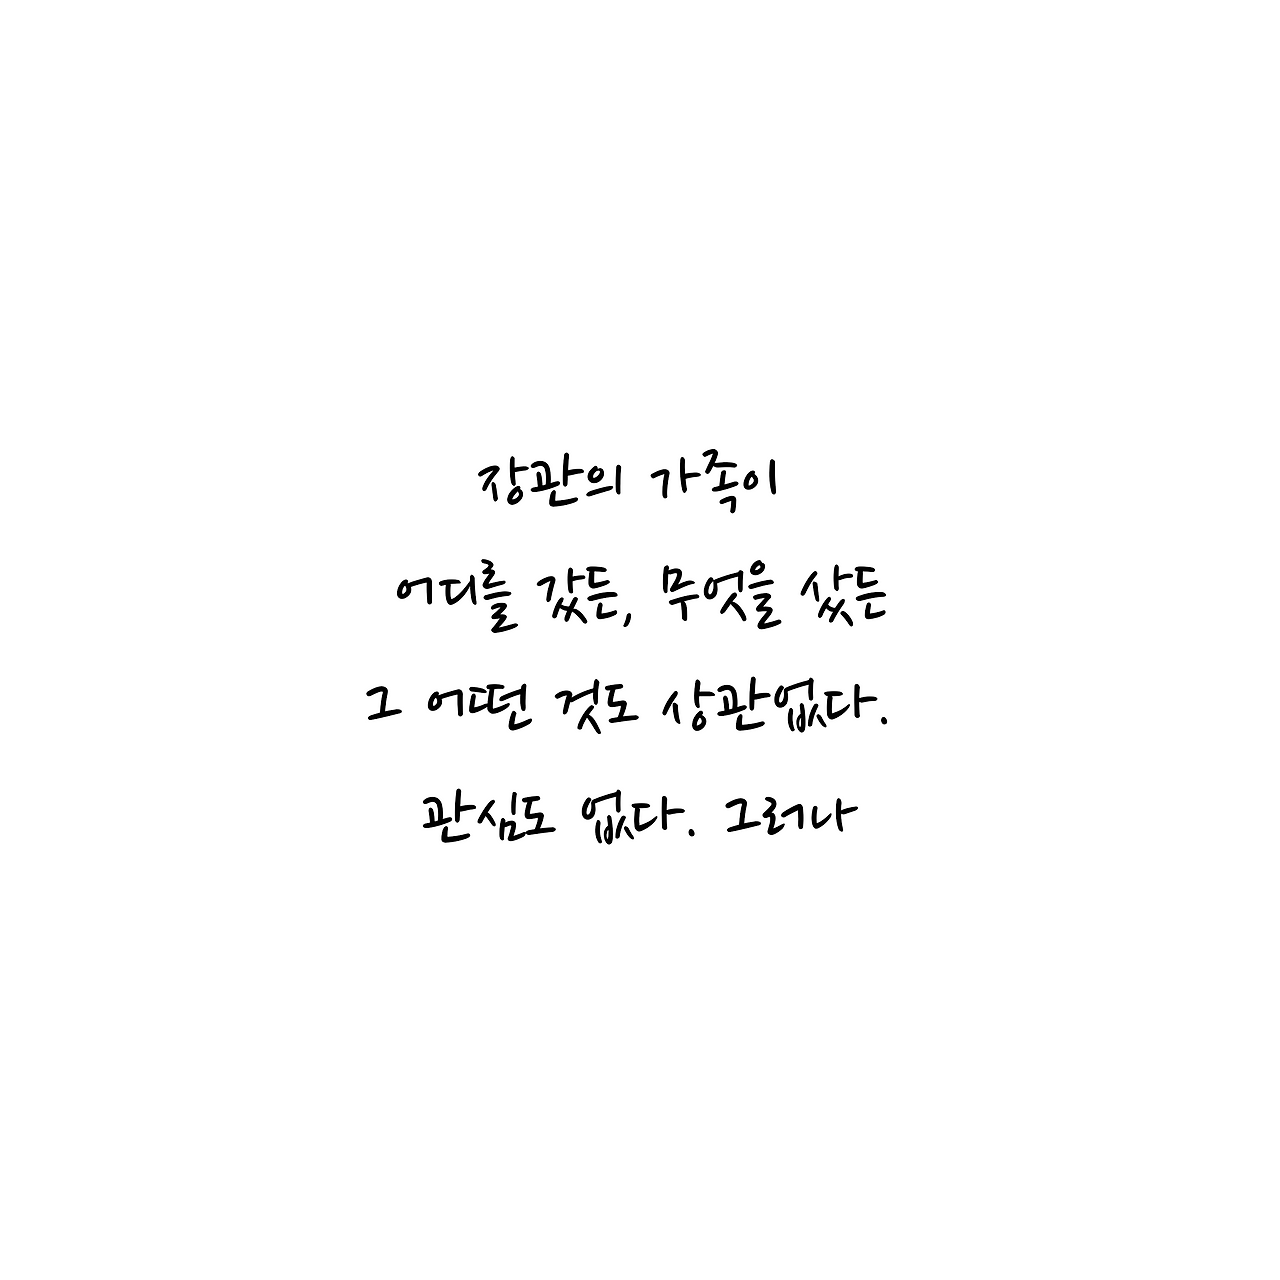 장관의 가족이
어디를 갔든, 무엇을 샀든
그 어떤 것도 상관없다.
관심도 없다. 그러나